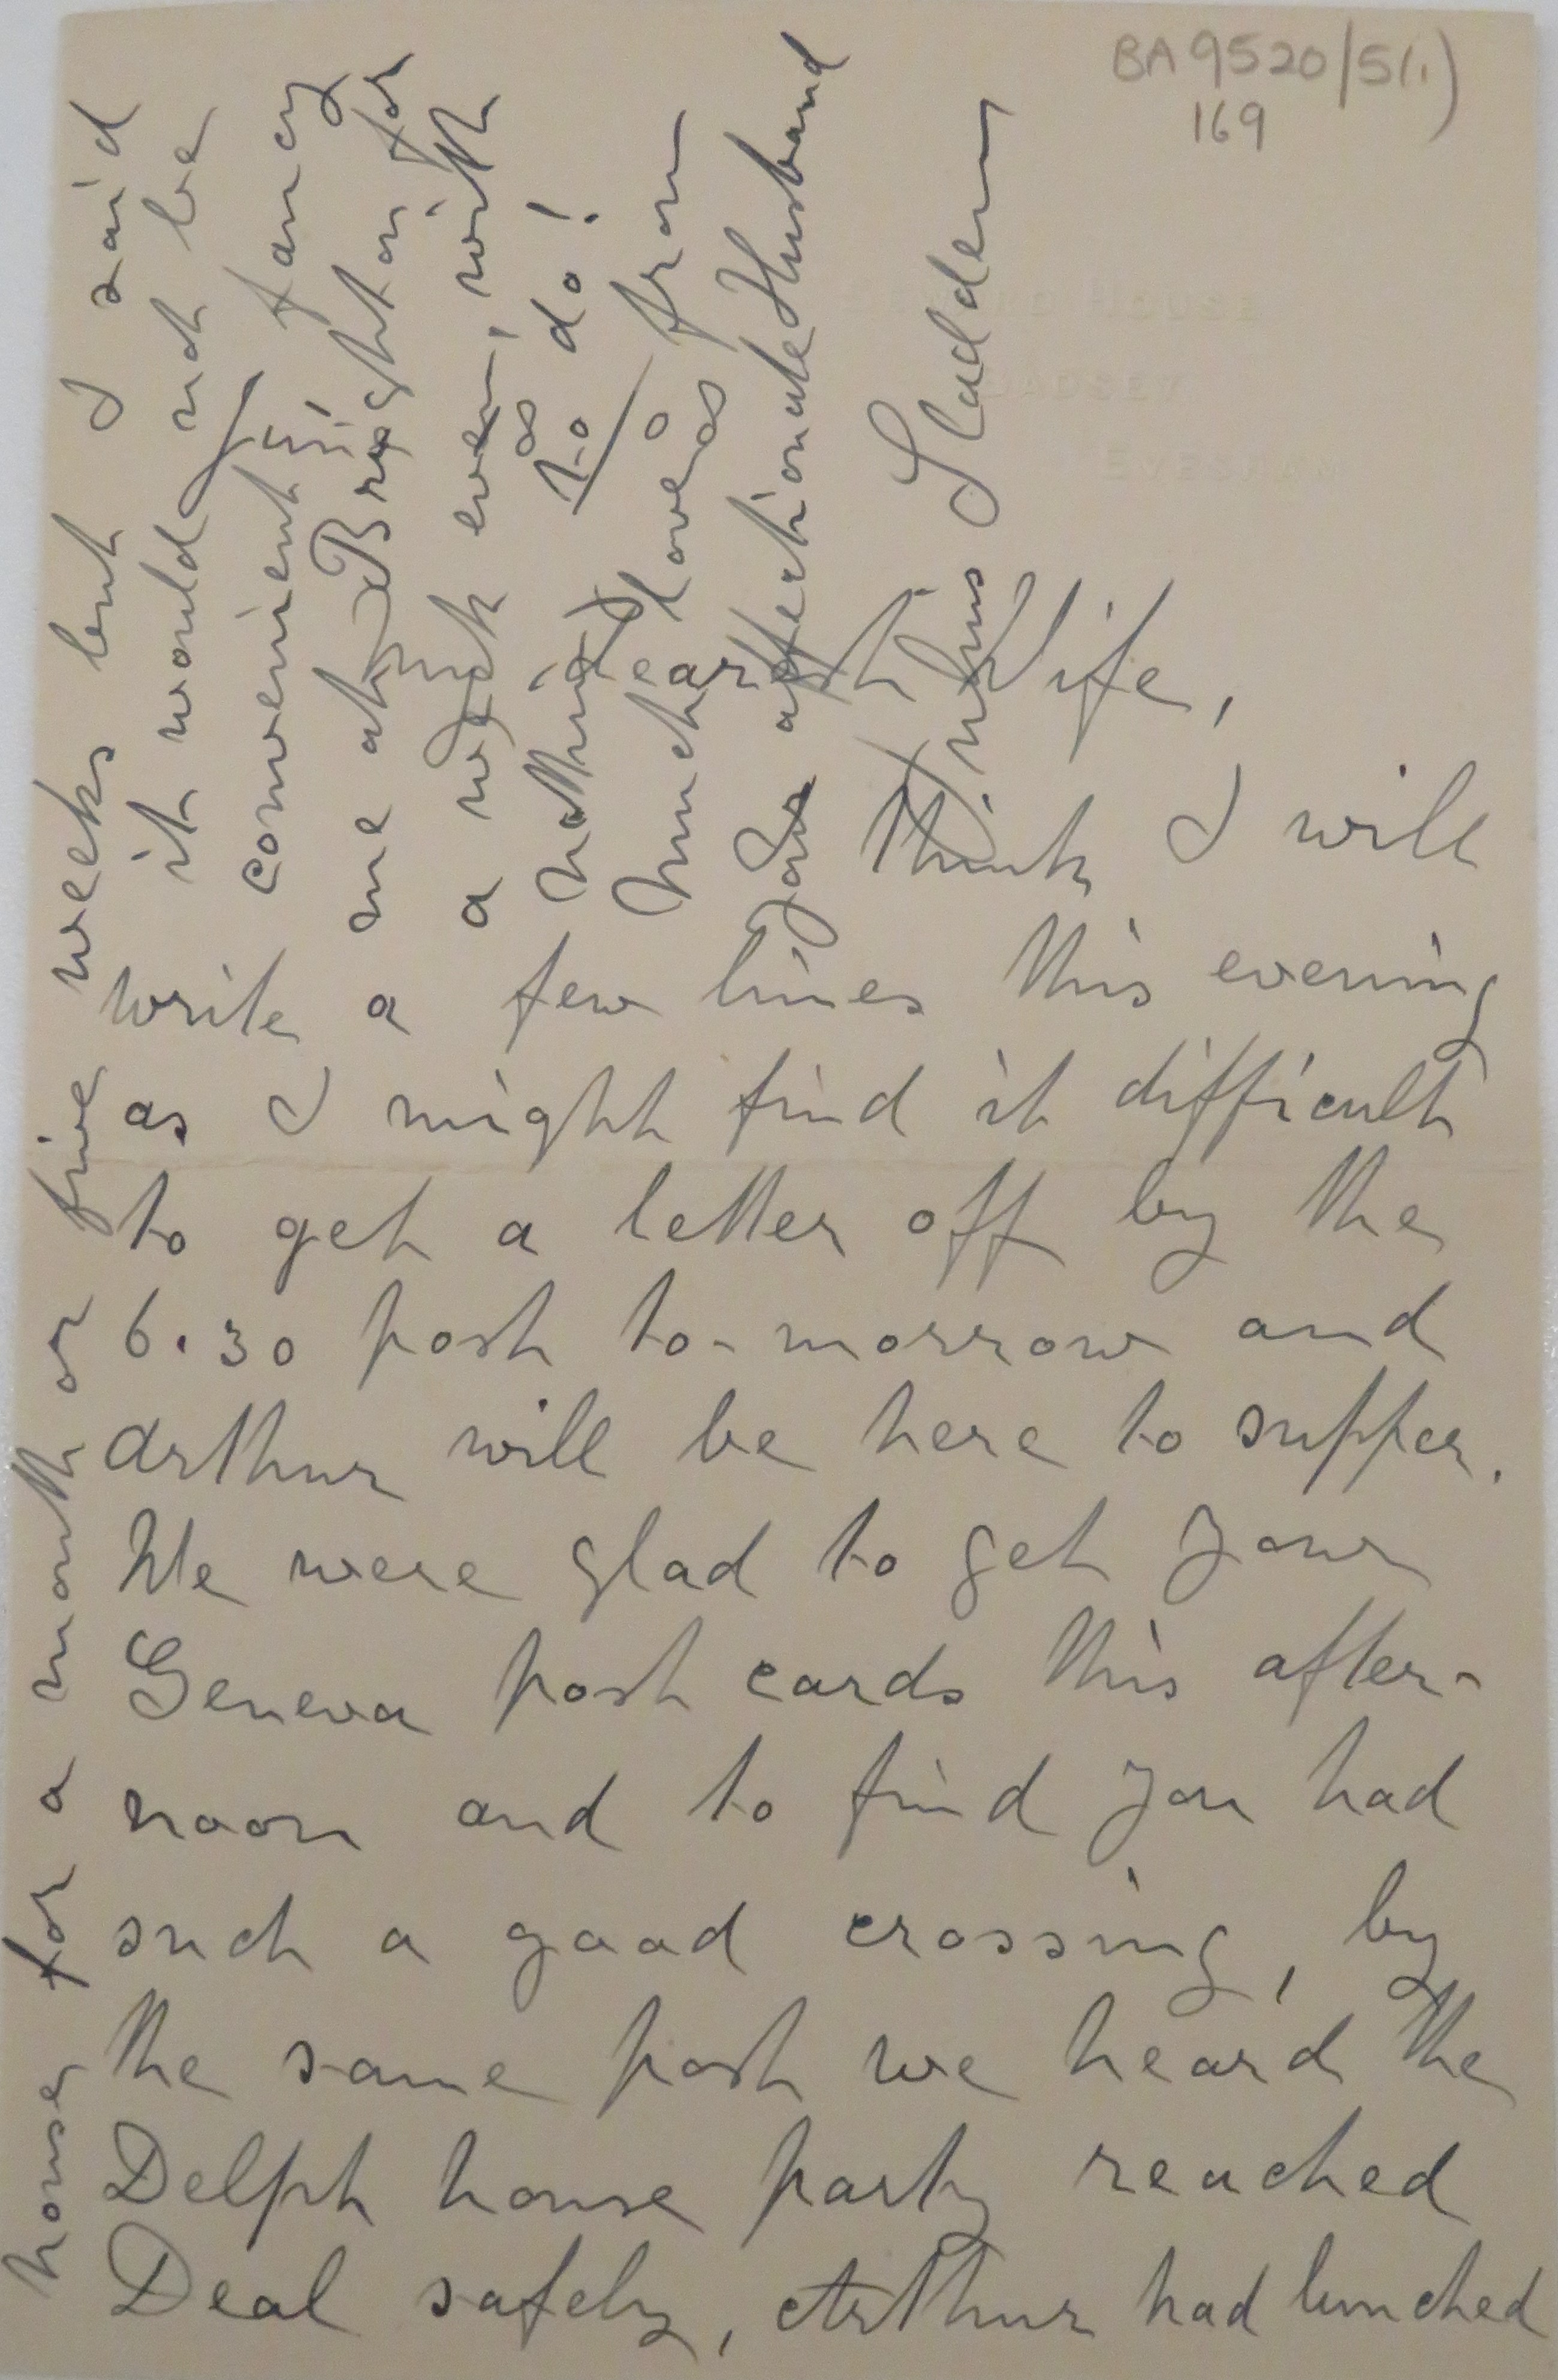 BA 9520/5(i.)
169
HOUSE
BADSEY
EVESHAM
Dearest Wife,
I think I will
write a few lines this evening
as I might find it difficult
to get a letter off by the
6.30 post to-morrow and
Arthur will be here to supper.
We were glad to get your
Geneva post cards this after-
noon and to find you had
such a good crossing, by
the same post we heard the
Delph house party reached
Deal safely, Arthur had lunched
house for a month or five weeks but I said
it would not be
convenient, fancy
me at Brighton for
a week even, with
nothing to do!
Much love from
Your affectionate Husband
Julius Sladden